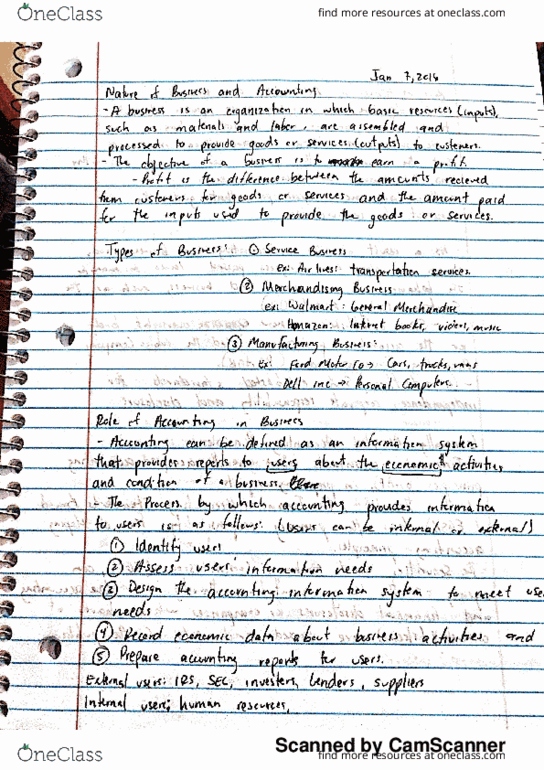 OneClass
find more resources at oneclass.com
Jan 7, 2016
Nature of Business and Accounting
- A business is an organization in which basic resources (inputs),
such as materials and labor, are assembled and
processed to provide goods or services (outputs) to customers.
- The objective of a business is to earn a profit.
- Profit is the difference between the amounts recieved
from customers for goods or services and the amount paid
for the inputs used to provide the goods or services.
Types of Business: ① Service Business
ex: Airlines: transportation services.
② Merchandising Business
ex: Walmart: General Merchandise
Amazon: Internet books, videos, music
③ Manufacturing Business:
Ex: Ford Motor Co → Cars, trucks, vans
Dell inc → Personal Computers
Role of Accounting in Business
- Accounting can be defined as an information system
that provides reports to users about the economic activities
and condition of a business.
- The Process by which accounting provides information
to users is as follows: (users can be internal or external)
① Identify users
② Assess users' information needs
③ Design the accounting information system to meet use
needs
④ Record economic data about business activities and
⑤ Prepare accounting reports for users.
External users: IRS, SEC, investers, lenders, suppliers
Internal users: human resources,
Scanned by CamScanner
OneClass
find more resources at oneclass.com